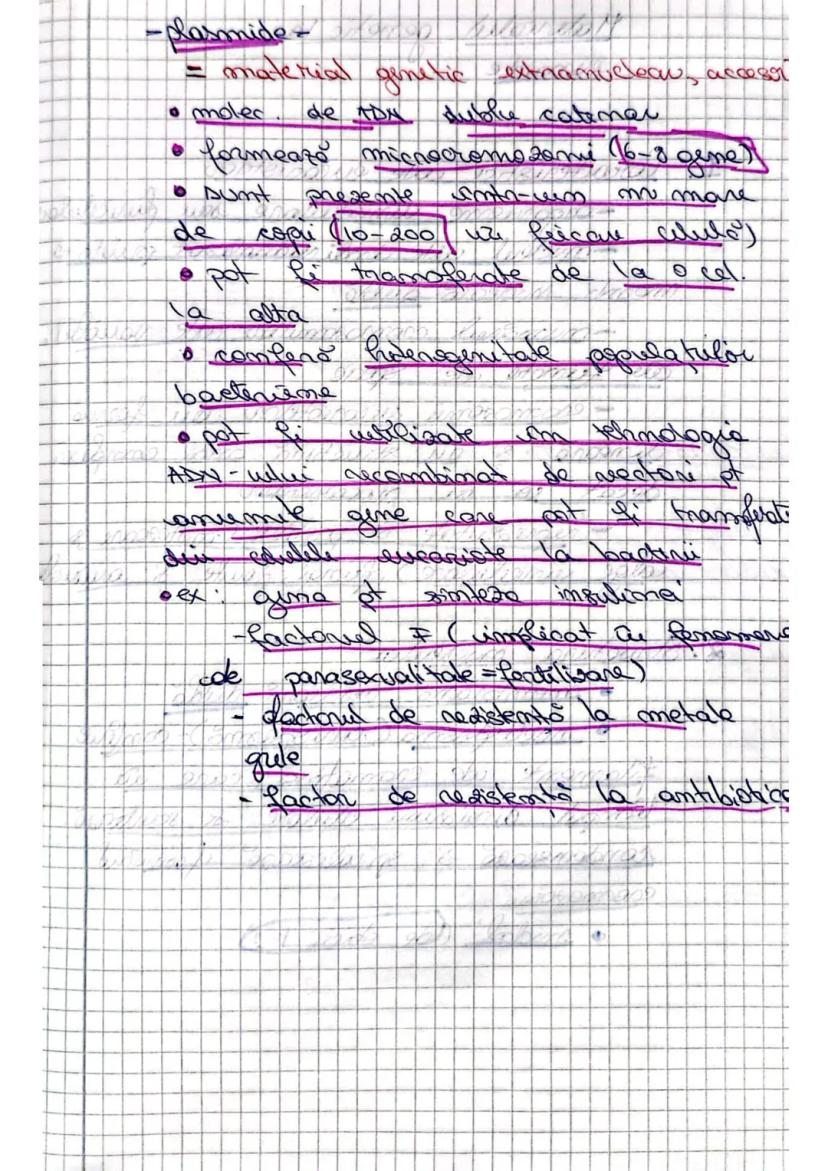 - plasmide -
= material genetic extranuclear, accesor
• molec. de ADN dublu catenar
• formează microcromozomi (6-8 gene)
• sunt prezente într-un nr mare
de copii (10-200 în fiecare celulă)
• pot fi transferate de la o cel.
la alta
• conferă heterogenitate populațiilor
bacteriene
• pot fi utilizate în tehnologia
ADN-ului recombinat de vectori pt
anumite gene care pot fi transferate
din celulele eucariote la bacterii
• ex: gena pt sinteza insulinei
- factorul F (implicat în fenomene
de parasexualitate = fertilizare)
- factorul de rezistență la metale
grele
- factor de rezistență la antibiotice